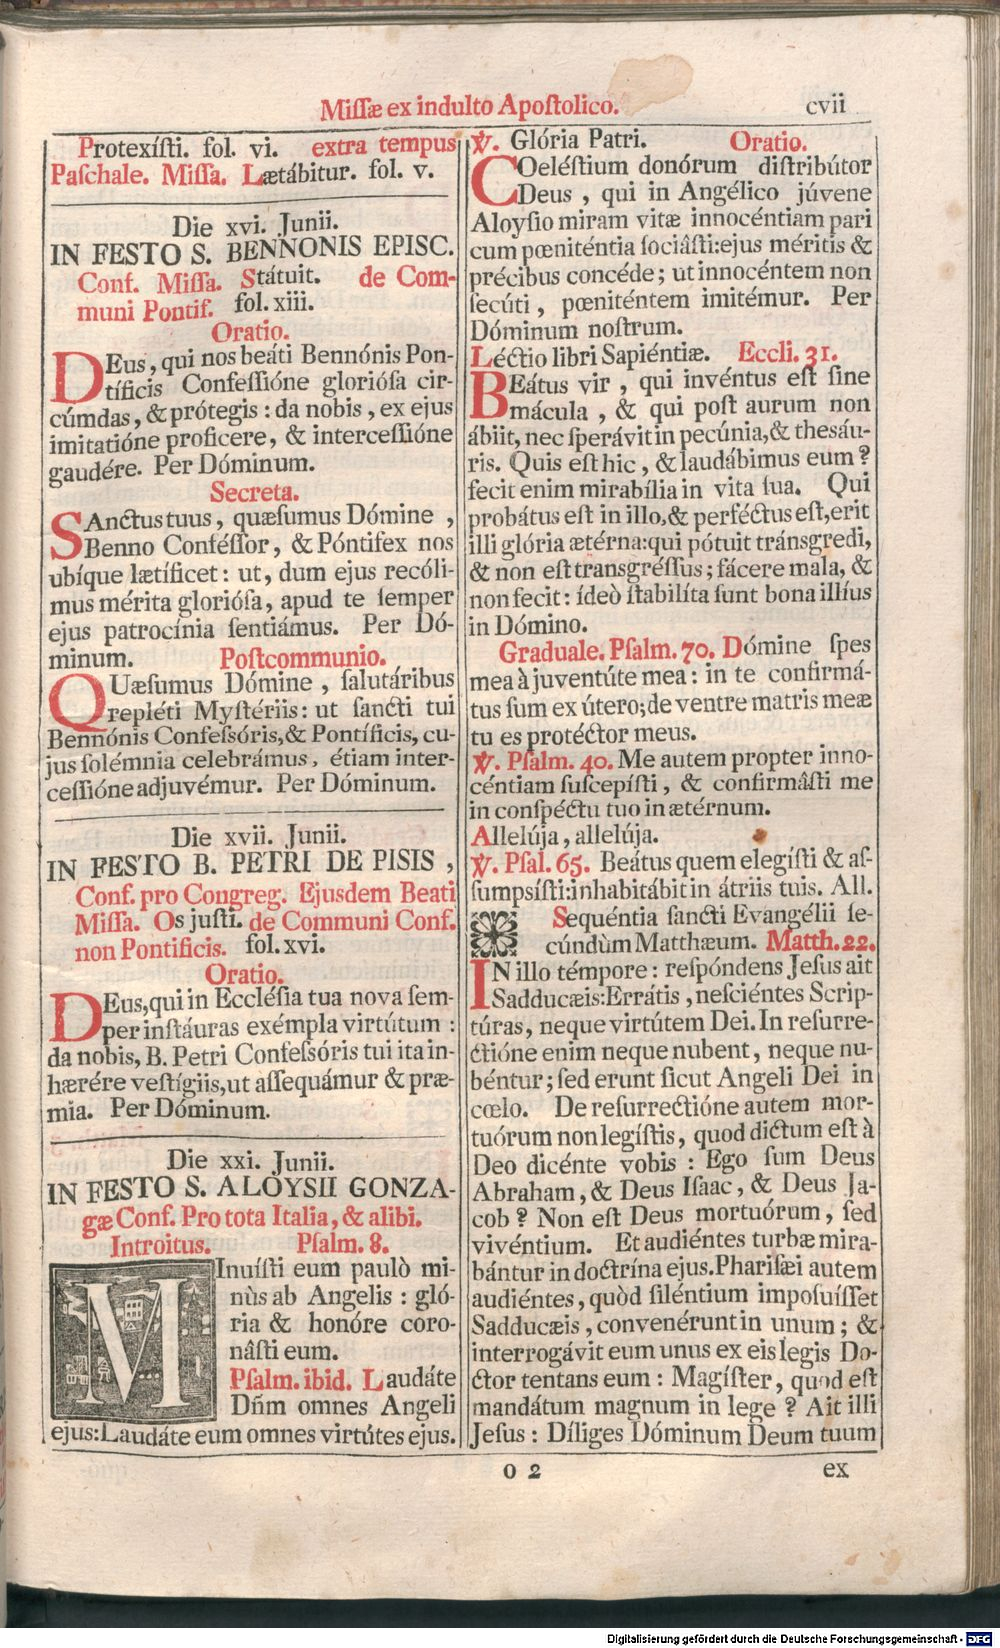 Miſſæ ex indulto Apoſtolico.
cvii
Protexíſti. fol. vi. extra tempus
Paſchale. Miſſa. Lætábitur. fol. v.
Die xvi. Junii.
IN FESTO S. BENNONIS EPISC.
Conf. Miſſa. Státuit. de Com-
muni Pontif. fol. xiii.
Oratio.
DEus, qui nos beáti Bennónis Pon-
tíficis Confeſſióne glorióſa cir-
cúmdas, & prótegis : da nobis , ex ejus
imitatióne proficere, & interceſſióne
gaudére. Per Dóminum.
Secreta.
SAnctus tuus , quæſumus Dómine ,
Benno Conféſſor, & Póntifex nos
ubíque lætíficet : ut, dum ejus recóli-
mus mérita glorióſa, apud te ſemper
ejus patrocínia ſentiámus. Per Dó-
minum. Poſtcommunio.
QUæſumus Dómine , ſalutáribus
repléti Myſtériis: ut ſancti tui
Bennónis Confeſſóris,& Pontíficis, cu-
jus ſolémnia celebrámus, étiam inter-
ceſſióne adjuvémur. Per Dóminum.
Die xvii. Junii.
IN FESTO B. PETRI DE PISIS ,
Conf. pro Congreg. Ejusdem Beati
Miſſa. Os juſti. de Communi Conf.
non Pontificis. fol. xvi.
Oratio.
DEus,qui in Eccléſia tua nova ſem-
per inſtáuras exémpla virtútum :
da nobis, B. Petri Confeſſóris tui ita in-
hærére veſtígiis,ut aſſequámur & præ-
mia. Per Dóminum.
Die xxi. Junii.
IN FESTO S. ALOYSII GONZA-
gæ Conf. Pro tota Italia, & alibi.
Introitus. Pſalm. 8.
MInuíſti eum paulò mi-
nùs ab Angelis : gló-
ria & honóre coro-
nâſti eum.
Pſalm. ibid. Laudáte
Dñm omnes Angeli
ejus:Laudáte eum omnes virtútes ejus.
℣. Glória Patri. Oratio.
COeléſtium donórum diſtribútor
Deus , qui in Angélico júvene
Aloyſio miram vitæ innocéntiam pari
cum pœniténtia ſociâſti:ejus méritis &
précibus concéde ; ut innocéntem non
ſecúti , pœniténtem imitémur. Per
Dóminum noſtrum.
Léctio libri Sapiéntiæ. Eccli. 31.
BEátus vir , qui invéntus eſt ſine
mácula , & qui poſt aurum non
ábiit, nec ſperávit in pecúnia,& theſáu-
ris. Quis eſt hic , & laudábimus eum ?
fecit enim mirabília in vita ſua. Qui
probátus eſt in illo,& perféctus eſt,erit
illi glória ætérna:qui pótuit tránsgredi,
& non eſt transgréſſus ; fácere mala, &
non fecit : ídeò ſtabilíta ſunt bona illíus
in Dómino.
Graduale. Pſalm. 70. Dómine ſpes
mea à juventúte mea : in te confirmá-
tus ſum ex útero; de ventre matris meæ
tu es protéctor meus.
℣. Pſalm. 40. Me autem propter inno-
céntiam ſuſcepíſti , & confirmâſti me
in conſpéctu tuo in ætérnum.
Allelúja, allelúja.
℣. Pſal. 65. Beátus quem elegíſti & aſ-
ſumpsíſti:inhabitábit in átriis tuis. All.
Sequéntia ſancti Evangélii ſe-
cúndùm Matthæum. Matth. 22.
IN illo témpore : reſpóndens Jeſus ait
Sadducæis:Errátis , neſciéntes Scrip-
túras, neque virtútem Dei. In reſurre-
ctióne enim neque nubent, neque nu-
béntur; ſed erunt ſicut Angeli Dei in
cœlo. De reſurrectióne autem mor-
tuórum non legíſtis, quod dictum eſt à
Deo dicénte vobis : Ego ſum Deus
Abraham, & Deus Iſaac, & Deus Ja-
cob ? Non eſt Deus mortuórum, ſed
vivéntium. Et audiéntes turbæ mira-
bántur in doctrína ejus. Phariſæi autem
audiéntes, quòd ſiléntium impoſuíſſet
Sadducæis, convenérunt in unum ; &
interrogávit eum unus ex eis legis Do-
ctor tentans eum : Magíſter, quod eſt
mandátum magnum in lege ? Ait illi
Jeſus : Díliges Dóminum Deum tuum
O 2
ex
Digitalisierung gefördert durch die Deutsche Forschungsgemeinschaft - DFG